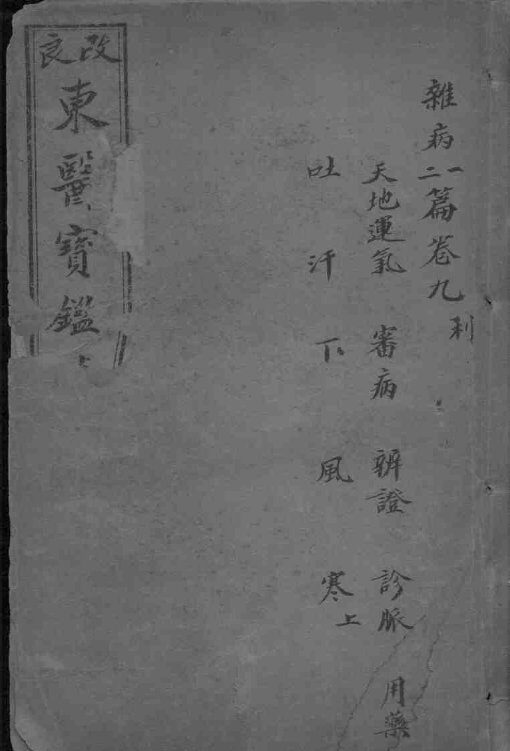 雜病
一二篇卷九
利
天地運氣 審病 辨證 診脈 用藥
吐 汗 下 風 寒上
改良
東醫寶鑑
上